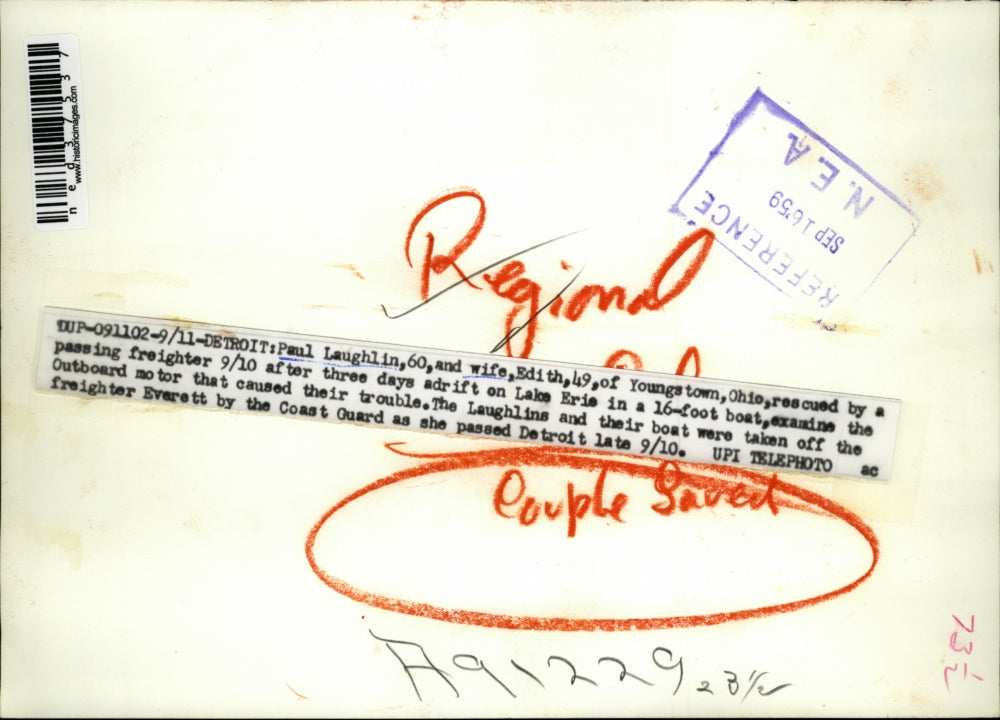 ned37537
www.historicimages.com
REFERENCE
SEP 16'59
N. E. A.
Regional
DUP-091102-9/11-DETROIT:Paul Laughlin,60,and wife,Edith,49,of Youngstown,Ohio,rescued by a
passing freighter 9/10 after three days adrift on Lake Erie in a 16-foot boat,examine the
Outboard motor that caused their trouble.The Laughlins and their boat were taken off the
freighter Everett by the Coast Guard as she passed Detroit late 9/10. UPI TELEPHOTO ac
Couple Saved
A91229 23½
73½